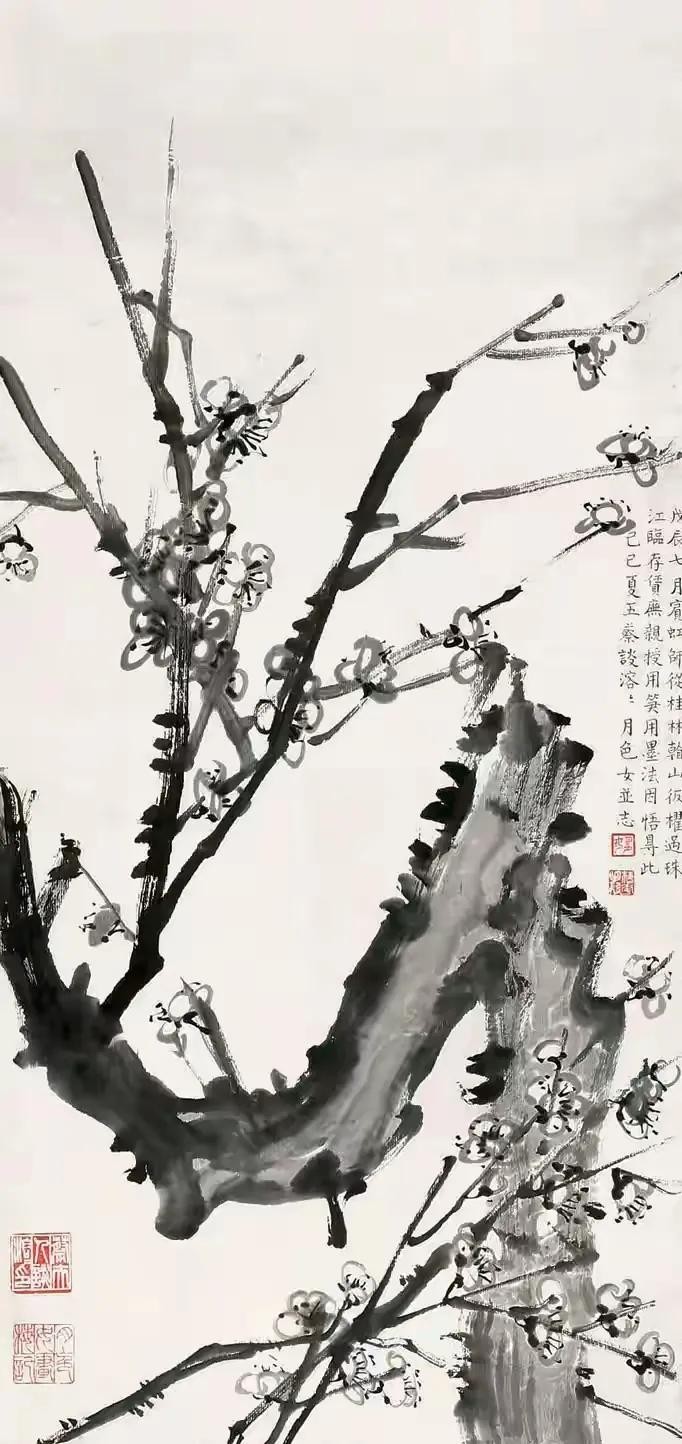 戊辰七月賓虹師從桂林韓山返櫂過珠
江臨存賃廡親授用筆用墨法因悟尋此
己巳夏五蔡談溶〻月色女並志